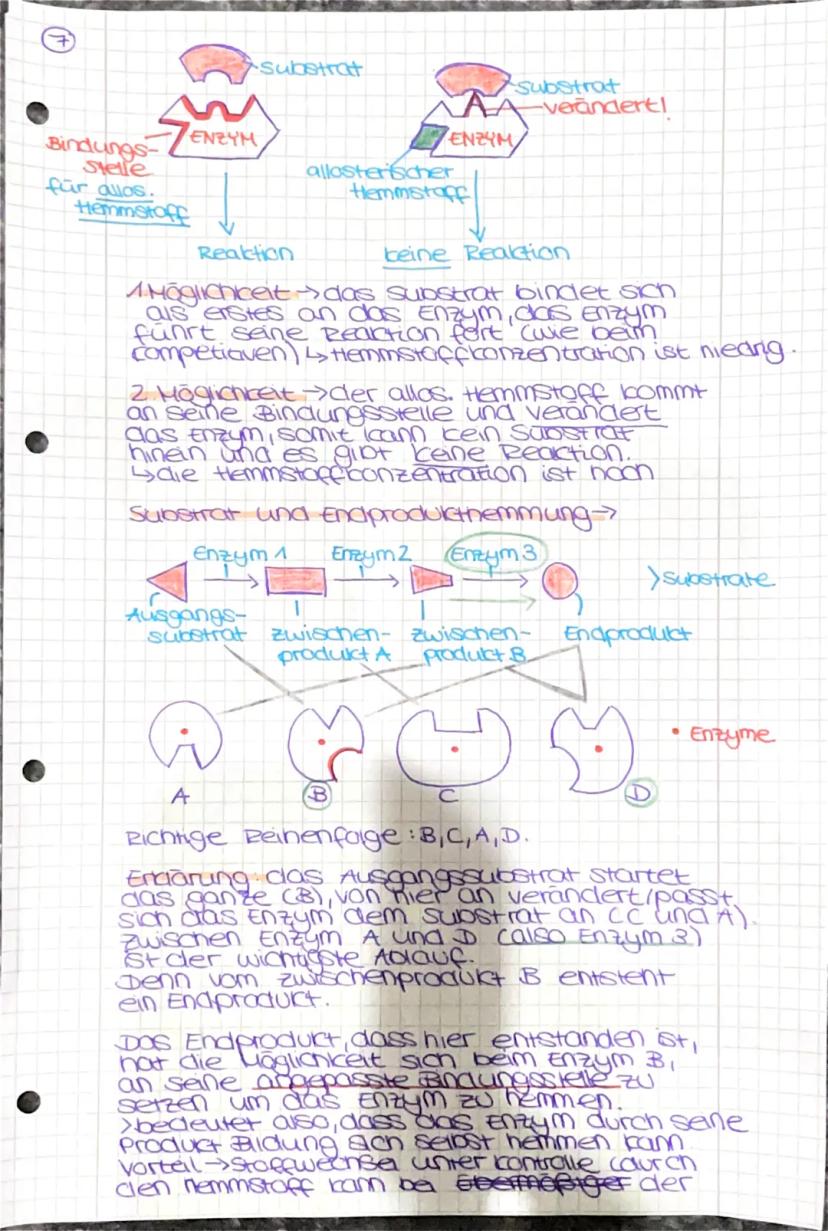 7
substrat
substrat
verändert!
ENZYM
ENZYM
Bindungs-
stelle
für allos.
Hemmstoff
allosterischer
Hemmstoff
Reaktion
keine Reaktion
1. Möglichkeit → das Substrat bindet sich
als erstes an das Enzym, das Enzym
führt seine Reaktion fort (wie beim
competitiven) ↳ Hemmstoffkonzentration ist niedrig.
2. Möglichkeit → der allos. Hemmstoff kommt
an seine Bindungsstelle und verändert
das Enzym, somit kann kein Substrat
hinein und es gibt keine Reaktion.
↳ die Hemmstoffkonzentration ist hoch
Substrat und Endprodukthemmung →
Enzym 1 Enzym 2 Enzym 3
> Substrate
Ausgangs-
substrat
zwischen-
produkt A
zwischen-
produkt B
Endprodukt
• Enzyme
A B C D
Richtige Reihenfolge: B, C, A, D.
Erklärung: das Ausgangssubstrat startet
das ganze (B), von hier an verändert/passt
sich das Enzym dem Substrat an (C und A).
zwischen Enzym A und D (also Enzym 3)
ist der wichtigste Ablauf.
Denn vom zwischenprodukt B entsteht
ein Endprodukt.
Das Endprodukt, dass hier entstanden ist,
hat die Möglichkeit sich beim Enzym B,
an seine angepasste Bindungsstelle zu
setzen um das Enzym zu hemmen.
> bedeutet also, dass das Enzym durch seine
Product Bildung sich selbst hemmen kann
Vorteil → Stoffwechsel unter kontrolle (durch
den Hemmstoff kann bei übermäßiger der